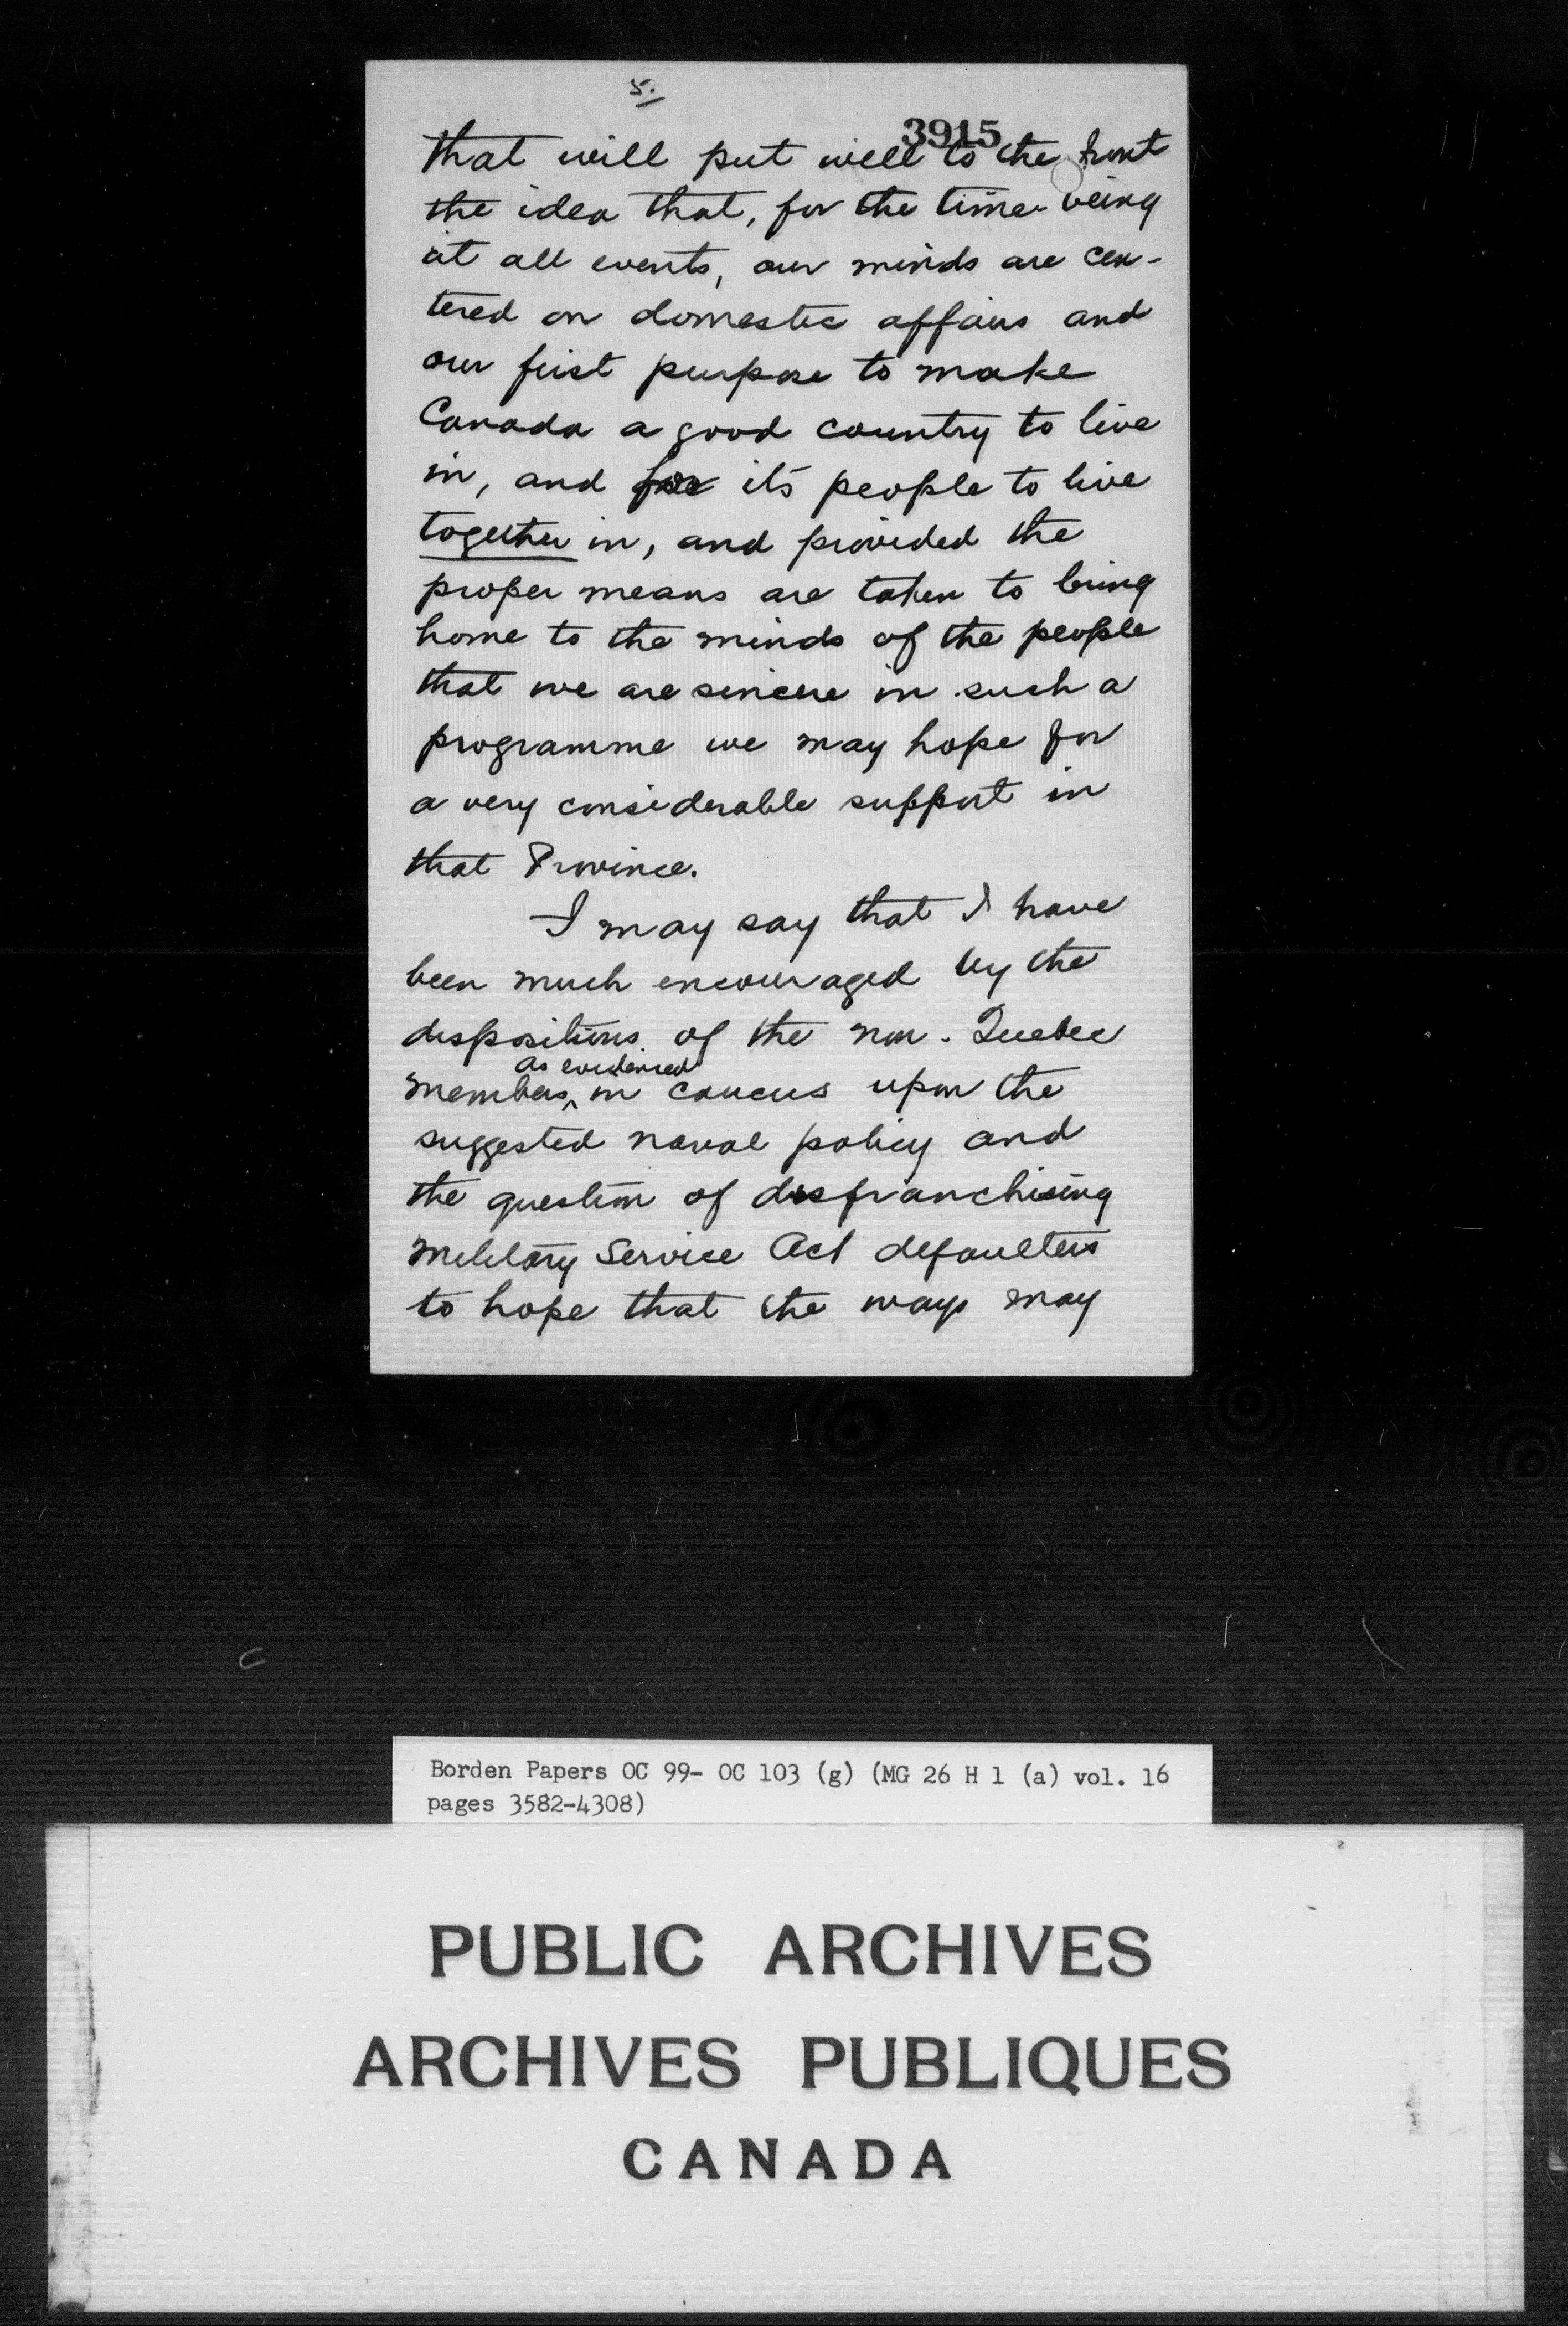 5.
3915
that will put well to the front
the idea that, for the time being
at all events, our minds are cen-
tered on domestic affairs and
our first purpose to make
Canada a good country to live
in, and for its people to live
together in, and provided the
proper means are taken to bring
home to the minds of the people
that we are sincere in such a
programme we may hope for
a very considerable support in
that Province.
I may say that I have
been much encouraged by the
dispositions of the non-Quebec
as evidenced
members ^ in caucus upon the
suggested naval policy and
the question of disfranchising
Military Service Act defaulters
to hope that the ways may
Borden Papers OC 99- OC 103 (g) (MG 26 H 1 (a) vol. 16
pages 3582-4308)
PUBLIC ARCHIVES
ARCHIVES PUBLIQUES
CANADA